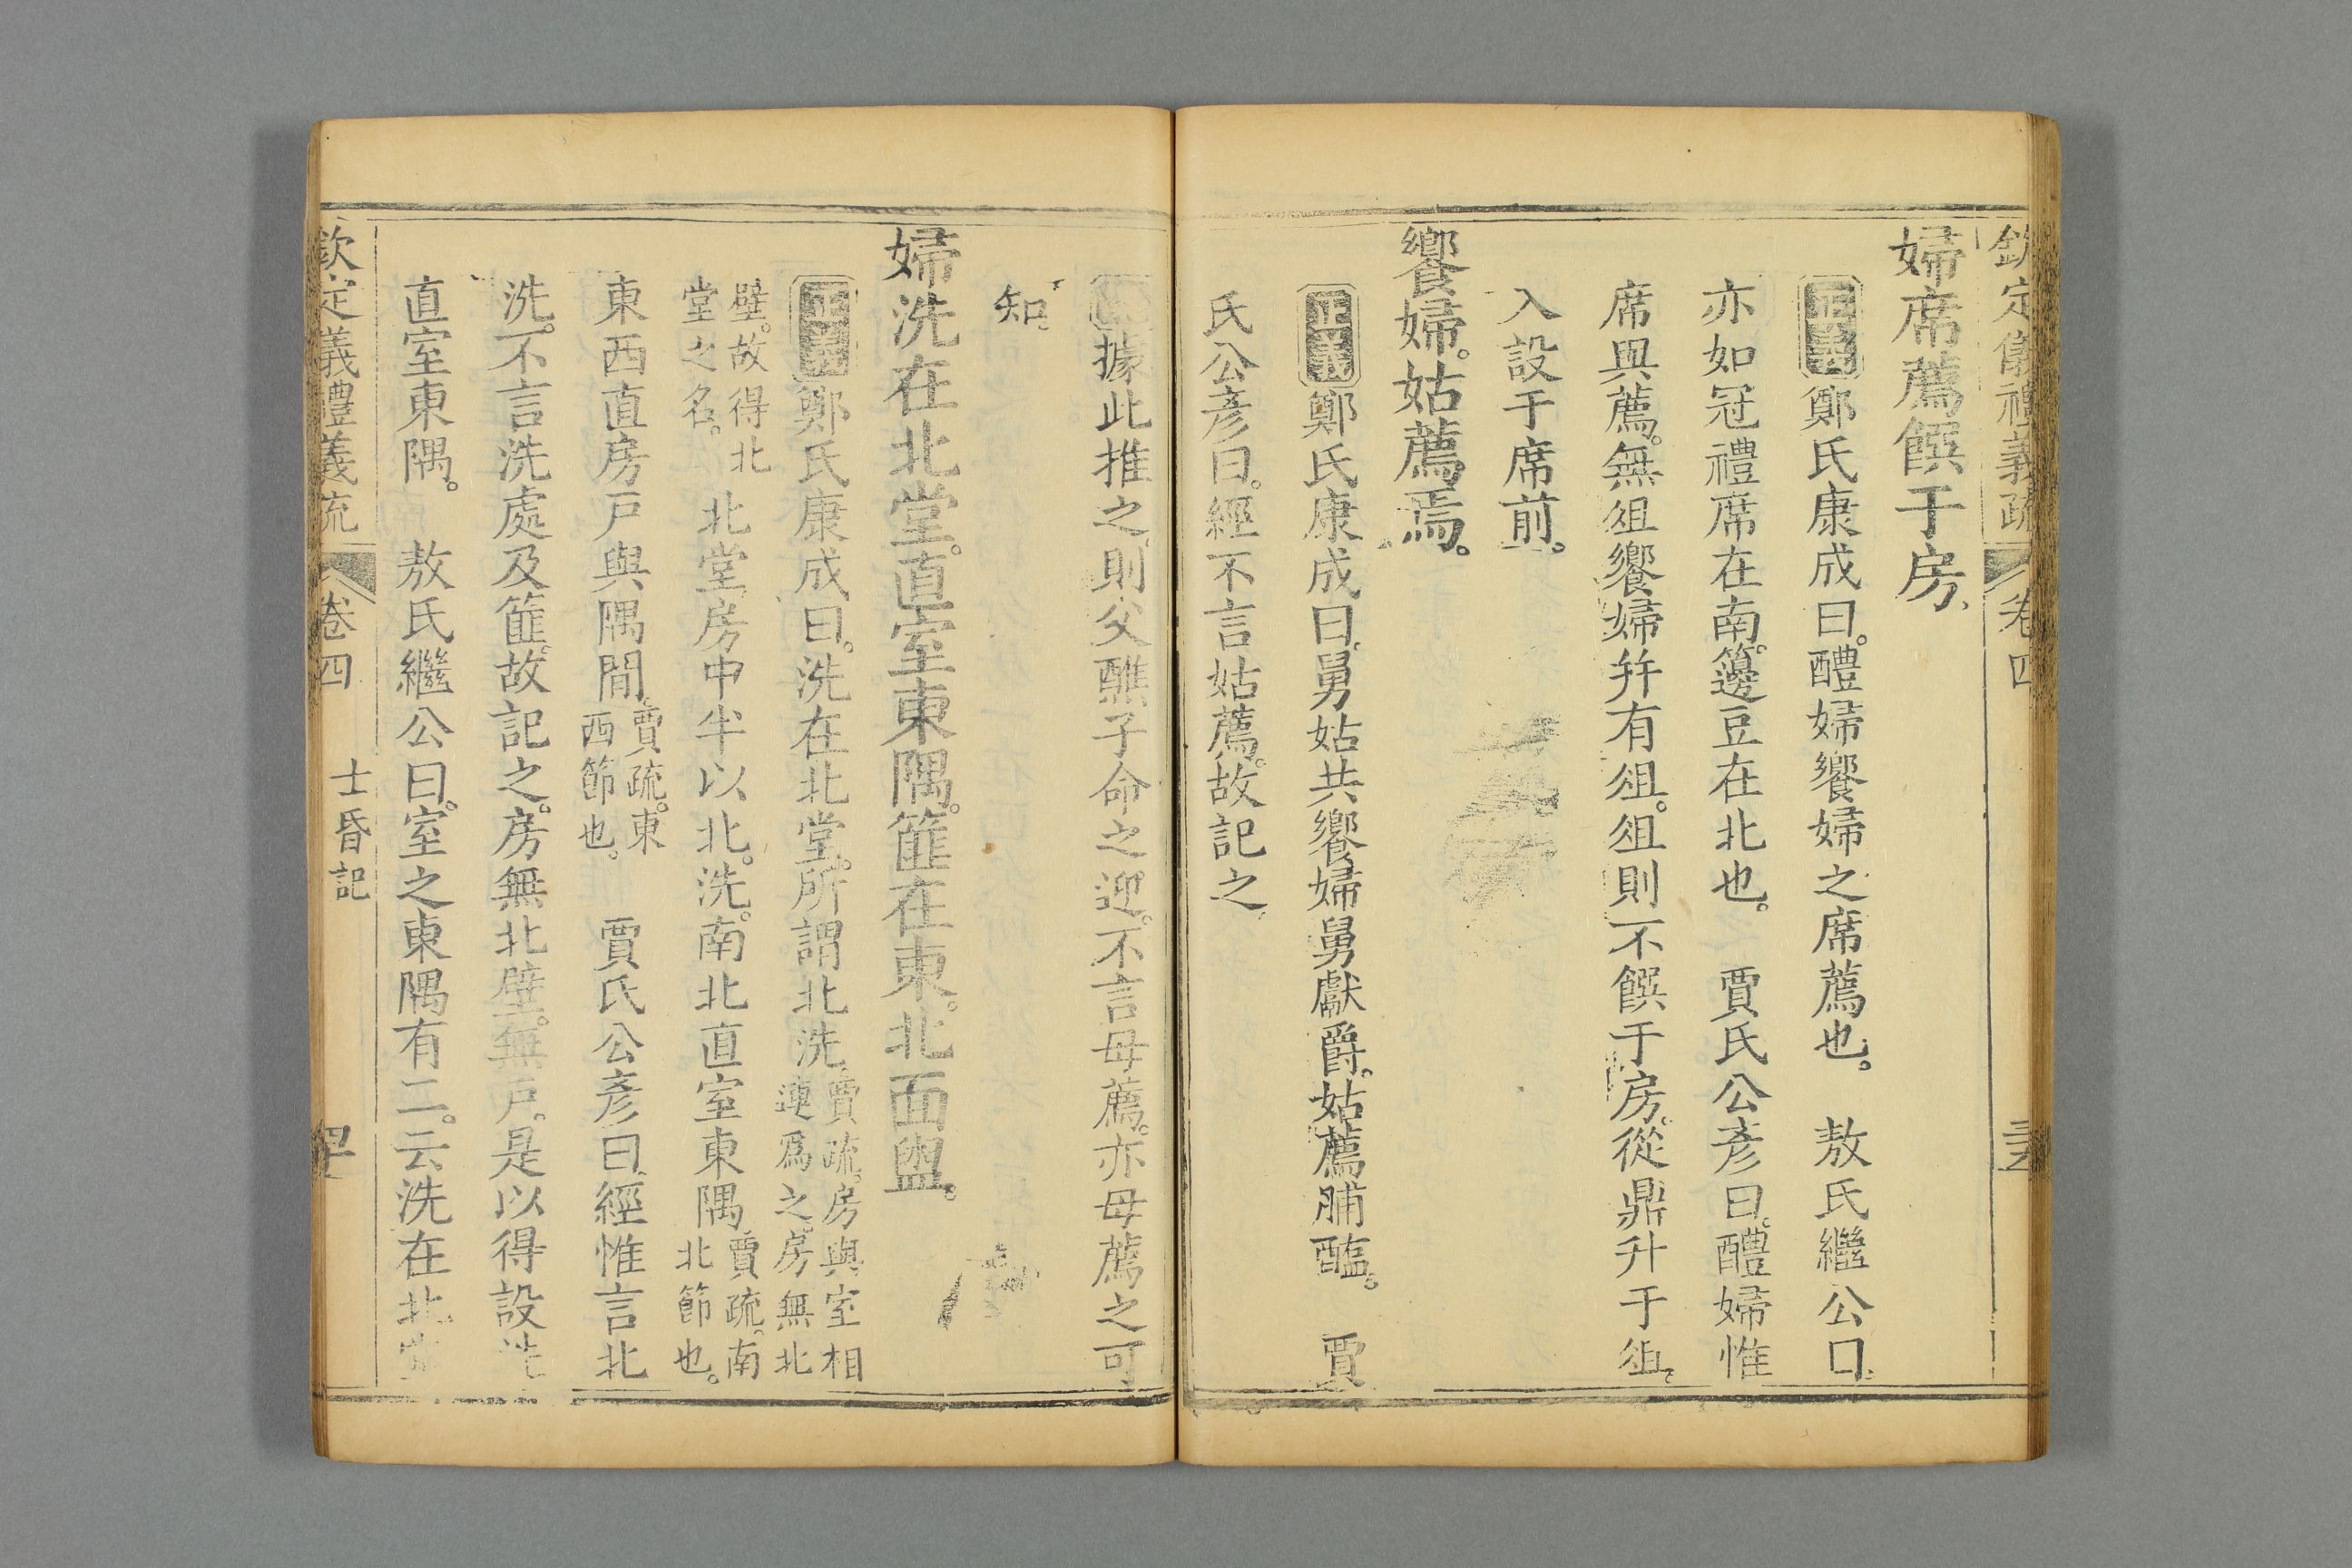 欽定儀禮義疏 卷四
婦席薦饌于房
正義鄭氏康成曰。醴婦饗婦之席薦也。 敖氏繼公曰
亦如冠禮席在南。籩豆在北也。 賈氏公彥曰。醴婦惟
席與薦。無俎饗婦并有俎。俎則不饌于房。從鼎升于俎。
入設于席前。
饗婦。姑薦焉。
正義鄭氏康成曰。舅姑共饗婦舅獻爵。姑薦脯醢。 賈
氏公彥曰。經不言姑薦。故記之
據此推之。則父醮子命之迎。不言母薦。亦母薦之可
知。
婦洗在北堂。直室東隅。篚在東。北面盥。
正義鄭氏康成曰。洗在北堂。所謂北洗賈疏。房與室相
連爲之。房無北
壁。故得北
堂之名。 北堂房中半以北。洗。南北直室東隅賈疏。南
北節也。
東西直房戶與隅間。賈疏。東
西節也。 賈氏公彥曰。經惟言北
洗。不言洗處及篚。故記之。房無北壁。無戶。是以得設洗
直室東隅。 敖氏繼公曰。室之東隅有二。云洗在北堂
欽定義禮義疏 卷四 士昏記